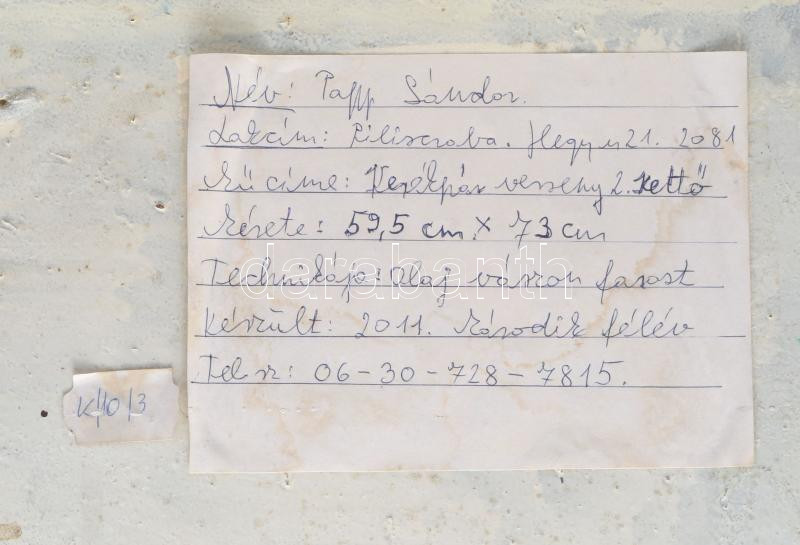 Név: Papp Sándor.
Lakcím: Piliscsaba. Hegy u 21. 2081
Mű címe: Kerékpár verseny 2. kettő
Mérete: 59,5 cm. x 73 cm
darabanth
Technikája: Olaj vászon farost
Készült: 2011. Második félév
Tel sz: 06-30-728-7815.
K/10/3